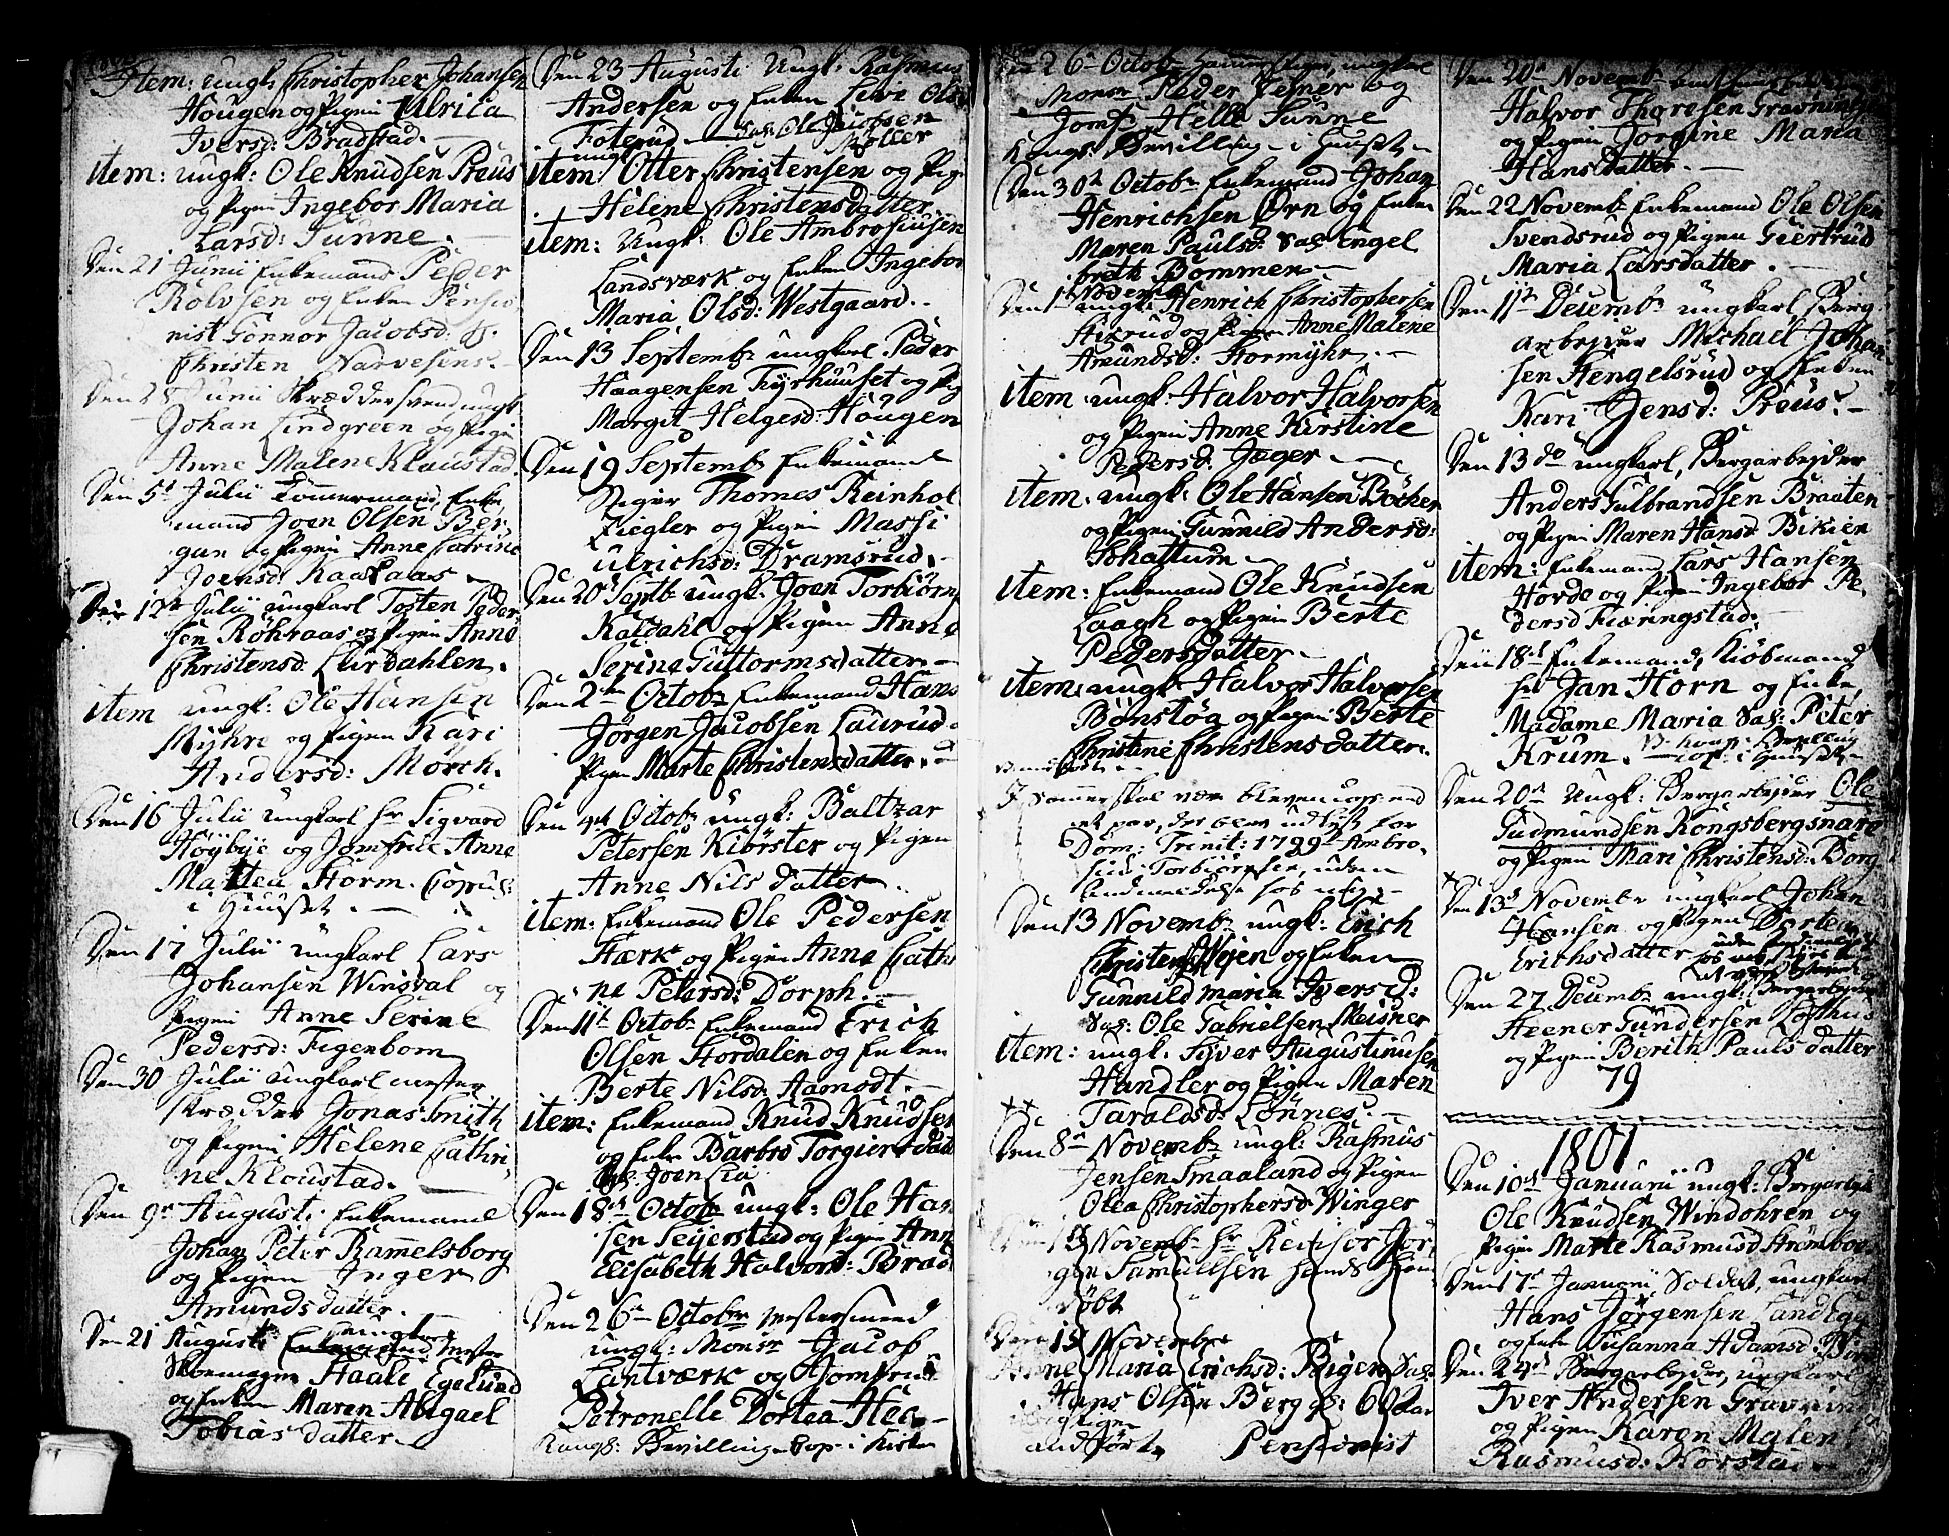 Item: ungk: Christopher Johansen
Hougen og Pigen Ulrica
Iversd: Bradstad.
item: ungk: Ole Knudsen Preus
og Pigen Ingebor Maria
Larsd: Sunne.
Den 21 Junii Enkemand Peder
Rolvsen og Enken Pensio
nist Gonnor Jacobsd:
Christen Narvesens.
Den Junii Skræddersvend ungk
Johan Lindgreen og Pigen
Anne Malene Klaustad.
Den 5t Julii Tømmermand, Enke
mand Joen Olsen Ber
gan og Pigen Anne Catrine
Joensd: Raaldaas
Den 12te Julii ungkarl Tosten Peder
sen Röhraas og Pigen Anne
Christensd: Lurdahlen.
item ungk: Ole Hansen
Myhre og Pigen Kari
Andersd: Mörch.
Den 16 Julii ungkarl hr Sigvard
Höybye og Jomfrue Anne
Mattea Storm. Copul:
i Huuset.
Den 17 Julii ungkarl Lars
Johansen Winsval og
Pigen Anne Serine
Pedersd: Figenbom
Den 30 Julii ungkarl mester
skrædder Jonas Smith
og Pigen Helene Cathri
ne Kloustad.
Den 9r Augusti Enkemand
Johan Peter Ramelsborg
og Pigen Inger
Amundsdatter.
Den 21 Augusti ungkarl Mester
Skoemager Haale Egelund
og Enken Maren Abigael
Tobiasdatter
Den 23 Augusti Ungk: Rasmus
Andersen og Enken Live Ols
Foterud Sal: Ole Jacobsen
Møller
item: ungk: Otter Christensen og Pig
Helene Christensdatter
item: Ungk: Ole Ambrosiusen
Landsværk og Enken Ingebor
Maria Olsd: Westgaard.
Den 13 Septembr ungkarl Peder
Haagensen Fyrhuuset og Pig
Margit Helgesd: Hougen
Den 19 Septembr Enkemand
Stiger Thomes Reinhol
Ziegler og Pigen Massi
Ulrichsd: Dramsrud.
Den 20t Septbr ungk: Joen Torbiörns
Kaldahl og Pigen Anne
Serine Guttormsdatter
Den 2den Octobr Enkemand Hans
Jørgen Jacobsen Laurud
Pigen Marte Christensdatter
Den 9de Octobr ungk: Baltzar
Petersen Kiörster og Pigen
Anne Nilsdatter
item: Enkemand Ole Pedersen
Stærk og Pigen Anne Cathr
ne Petersd: Dorph.
Den 11te Octobr Enkemand Erich
Olsen Stordalen og Enken
Berte Nilsd: Aamodt.
item: Enkemand Knud Knudsen
og Enke Barbro Torgiersdatt
Sal: Joen Lia
Den 18de Octobr ungk: Ole Han
sen Seyerstad og Pigen Ann
Elisabeth Halvorsd: Brad
Den 26de Octobr Mestersmed
ungk: Monsr Jacob
Lantværk og Jomfrue
Petronelle Dortea Hee
Kongl: Bevilling Cop. i Kirken
26de Octobr ungkarl
Monsr Peder Tejner og
Jomf: Helle Sunne
Kongl: Bevilling i Huuset
Den 30te Octobr Enkemand Johan
Henrichsen Örn og Enken
Maren Paulsd: Sal: Engel
breth Bommen
Den 1te Novembr ungk: Henrich Christophersen
Stærud og Pigen Anne Malene
Amundsd: Stormyhr.
item ungk: Halvor Halvorsen
og Pigen Anne Kirstine
Pedersd: Jæger.
item: ungk: Ole Hansen Böcker
og Pigen Gunnild Andersd:
Schattum
item: Enkemand Ole Knudsen
Laagh og Pigen Berte
Pedersdatter
item: ungk: Halvor Halvorsen
Bönstöa og Pigen Berte
Christine Christensdatter.
I Sommer skal være bleven
et par, der blev udlyst for
Dom: Trinit: 1799 Ambro
sius Torbiörnsen, uden
Anmeldelse hos mig
Den 13 Novembr ungk: Erich
Christens Wejen og Enken
Gunnild Maria Iversd:
Sal: Ole Gabrielsen Meisner
item: ungk: Syver Augustinusen
Handler og Pigen Maren
Taraldsd: Lönnes.
Den 8de Novembr ungk: Rasmus
Jensen Smaaland og Pigen
Olea Christophersd: Winger
Novembr hr Revisor Jör
gen Samuelsen
döbt
Novembr
Anne Maria Erichsd: Bigen Sal:
Hans Olsen Berg 60 Aar
Pensionist
Den 20de Novembr
Halvor Thoresen Gravning
og Pigen Jörgine Maria
Hansdatter.
Den 22 Novembr Enkemand Ole Olsen
Svendsrud og Pigen Giertrud
Maria Larsdatter.
Den 11te Decembr ungkarl Berg
arbejder Michael Johan
sen Hengelsrud og Enken
Kari Jensd: Preus.
Den 13 do ungkarl, Bergarbejder
Anders Gulbrandsen Braaten
og Pigen Maren Hansd Bikien
item: Enkemand Lars Hansen
Horde og Pigen Ingebor Pe
dersd Fiæringstad.
Den 18de Enkemand, Kiöbmand
hr Jan Horn og Enke,
Madame Maria Sal: Peter
Krum. Kong: Bevilling
Cop: i Huuset
Den 20de Ungk: Bergarbejder Ole
Gudmundsen Kongsbergsnare
og Pigen Mari Christensd: Borg
Den 13de Novembr ungkarl Johan
Hansen og Pigen Dorte
Erichsdatter
Den 27 Decembr ungk: Bergarbejder
Steener Gundersen Lofthus
og Pigen Berith Paulsdatter
79
1801
Den 10de Januarii ungk: Bergarbejd
Ole Knudsen Windohren og
Pigen Marte Rasmusd Strömboe
Den 17de Januarii Soldat, ungkarl
Hans Jørgensen Land
og Enke Susanna Adamsd:
Den 24de Bergarbejder, ungkarl
Iver Andersen Gravnin
og Pigen Karen Malen
Rasmusd: Korstad